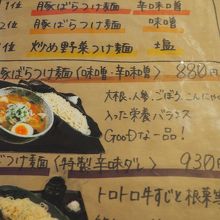 1位 豚ばらつけ麺 辛味噌
2位 豚ばらつけ麺 味噌
1位 炒め野菜つけ麺 塩
豚ばらつけ麺(味噌・辛味噌) 880
大根、人参、ごぼう、こんにゃく
入った栄養バランス
GooDな一品!
つけ麺(特製辛味ダレ) 930
トロトロ牛すじと根菜